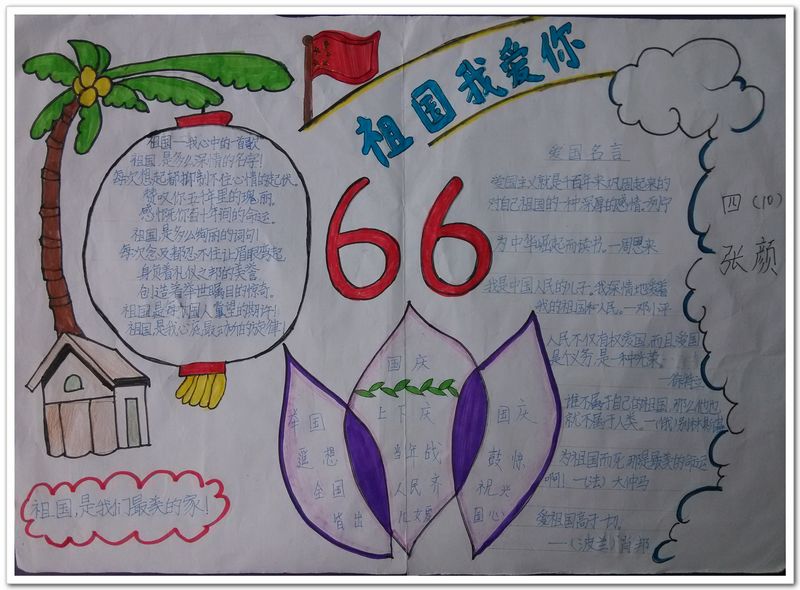 祖国我爱你
66
祖国——我心中的一首歌
祖国是多么深情的名字!
每次想起都抑制不住心情的起伏。
赞叹你五千年里的瑰丽,
感慨你百十年间的命运。
祖国是多么绚丽的词句!
每次念及都忍不住让眉眼弯起
身负着礼仪之邦的美誉
创造着举世瞩目的惊奇。
祖国是每个国人冀望的期许!
祖国是我心底最动听的旋律!
祖国,是我们最美的家!
国庆
举国上下庆国庆
遥想当年战鼓惊
全国人民齐祝兴
皆出儿女
爱国名言
爱国主义就是千百年来巩固起来的
对自己祖国的一种深厚的感情。列宁
为中华崛起而读书。—周恩来
我是中国人民的儿子。我深情地爱着
我的祖国和人民。—邓小平
人民不仅有权爱国,而且爱国
是个义务,是一种光荣。
—徐特立
谁不属于自己的祖国,那么他也
就不属于人类。—(俄)别林斯基
为祖国而死,那是最美的命运
啊!—(法)大仲马
爱祖国高于一切。
——(波兰)肖邦
四(10)
张颜